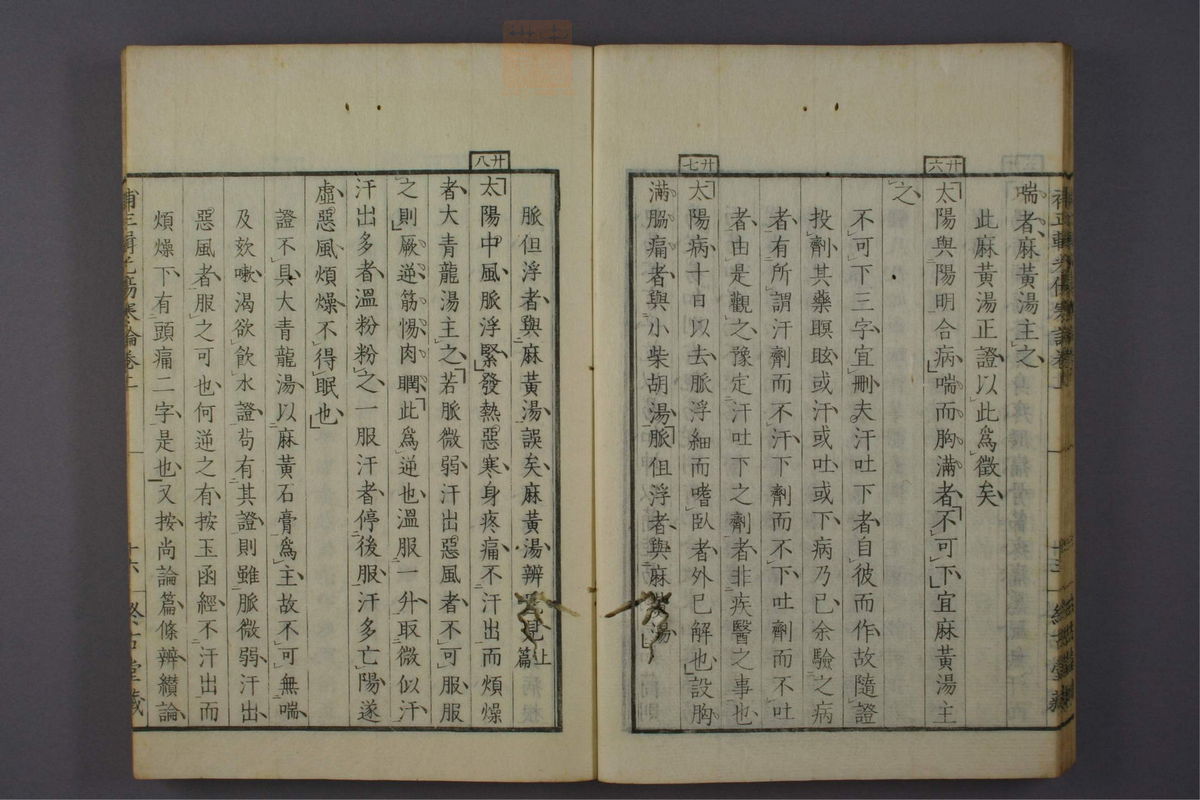 喘者麻黃湯主之
此麻黃湯正證以此爲徵矣
廿六
太陽與陽明合病喘而胸滿者不可下宜麻黃湯主
之
不可下三字宜刪夫汗吐下者自彼而作故隨證
投劑其藥瞑眩或汗或吐或下病乃已余驗之病
者有所謂汗劑而不汗下劑而不下吐劑而不吐
者由是觀之豫定汗吐下之劑者非疾醫之事也
廿七
太陽病十日以去脈浮細而嗜臥者外已解也設胸
滿脇痛者與小柴胡湯脈但浮者與麻黃湯
脈但浮者與麻黃湯誤矣麻黃湯辨見上篇
廿八
太陽中風脈浮緊發熱惡寒身疼痛不汗出而煩燥
者大青龍湯主之若脈微弱汗出惡風者不可服服
之則厥逆筋惕肉瞤此爲逆也溫服一升取微似汗
汗出多者溫粉粉之一服汗者停後服汗多亡陽遂
虛惡風煩燥不得眠也
證不具大青龍湯以麻黃石膏爲主故不可無喘
及欬嗽渴欲飮水證苟有其證則雖脈微弱汗出
惡風者服之可也何逆之有按玉函經不汗出而
煩燥下有頭痛二字是也又按尚論篇條辨纘論
傷寒論卷二
十六